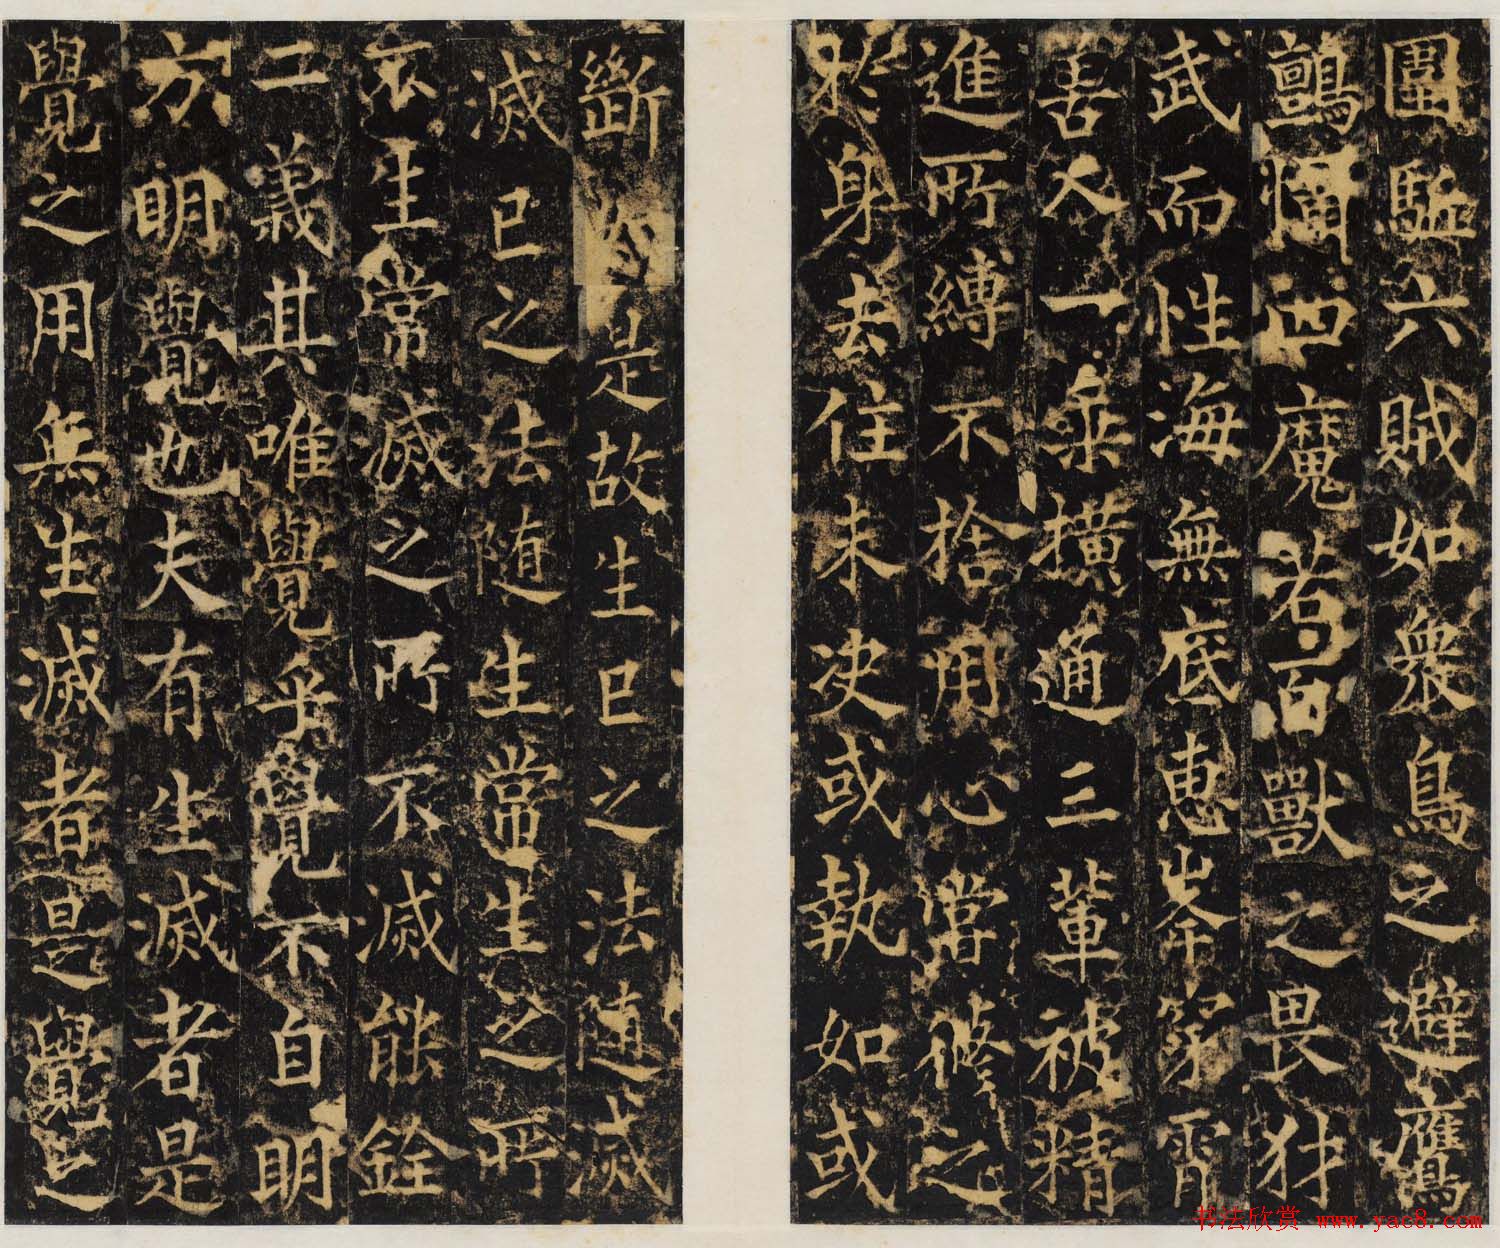 圍駈六賊如衆鳥之避鷹
鸇懾四魔若百獸之畏犲
武而性海無底惠岑穷霄
善入一乘橫通三輩被精
進所縛不捨用心當修之
於身去住未决或執如或
斷 是故生已之法随滅
滅已之法随生常生之所
衣生常滅之所不滅能銓
二義其唯覺乎覺不自明
方明覺也夫有生滅者是
覺之用無生滅者是覺之
书法欣赏 www.yac8.com